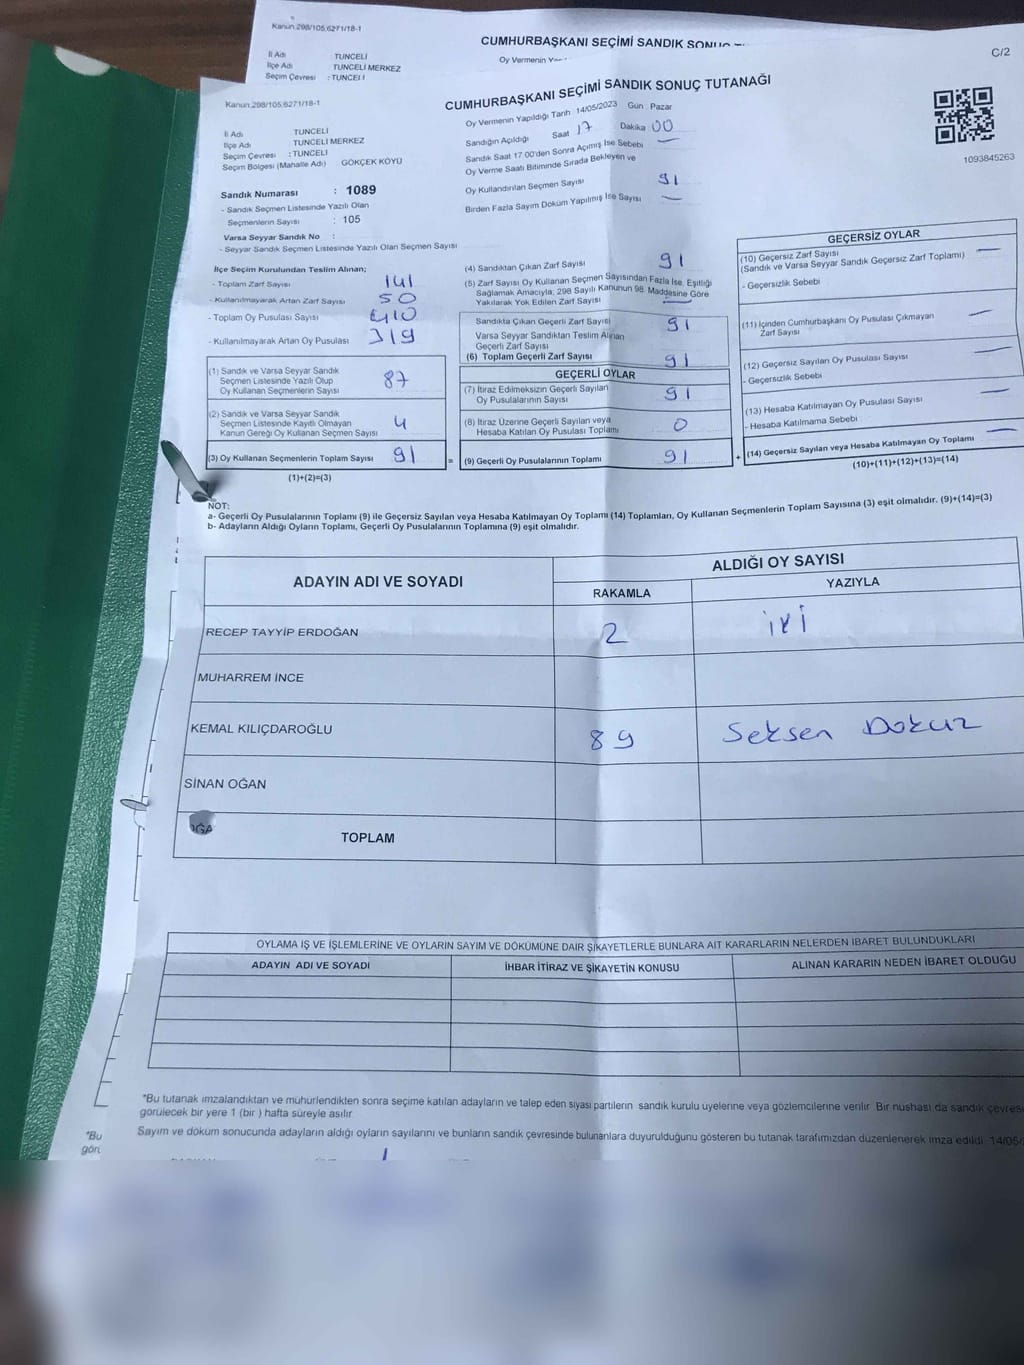 Kanun.298/105,6271/18-1
CUMHURBAŞKANI SEÇİMİ SANDIK SONUÇ
Oy Vermenin
İl Adı : TUNCELİ
İlçe Adı TUNCELİ MERKEZ
Seçim Çevresi : TUNCELİ
C/2
Kanun.298/105,6271/18-1
CUMHURBAŞKANI SEÇİMİ SANDIK SONUÇ TUTANAĞI
1093845263
İl Adı TUNCELİ
İlçe Adı TUNCELİ MERKEZ
Seçim Çevresi : TUNCELİ
Seçim Bölgesi (Mahalle Adı) GÖKÇEK KÖYÜ
Sandık Numarası : 1089
- Sandık Seçmen Listesinde Yazılı Olan
Seçmenlerin Sayısı : 105
Varsa Seyyar Sandık No :
- Seyyar Sandık Seçmen Listesinde Yazılı Olan Seçmen Sayısı
Oy Vermenin Yapıldığı Tarih 14/05/2023 Gün Pazar
Sandığın Açıldığı Saat 17 Dakika 00
Sandık Saat 17.00'den Sonra Açımış İse Sebebi —
Oy Verme Saati Bitiminde Sırada Bekleyen ve
Oy Kullandırılan Seçmen Sayısı 91
Birden Fazla Sayım Döküm Yapılmış İse Sayısı —
İlçe Seçim Kurulundan Teslim Alınan;
- Toplam Zarf Sayısı 141
- Kullanılmayarak Artan Zarf Sayısı 50
- Toplam Oy Pusulası Sayısı 410
- Kullanılmayarak Artan Oy Pusulası 319
(1) Sandık ve Varsa Seyyar Sandık
Seçmen Listesinde Yazılı Olup
Oy Kullanan Seçmenlerin Sayısı 87
(2) Sandık ve Varsa Seyyar Sandık
Seçmen Listesinde Kayıtlı Olmayan
Kanun Gereği Oy Kullanan Seçmen Sayısı 4
(3) Oy Kullanan Seçmenlerin Toplam Sayısı 91
(1)+(2)=(3)
(4) Sandıktan Çıkan Zarf Sayısı 91
(5) Zarf Sayısı Oy Kullanan Seçmen Sayısından Fazla İse, Eşitliği
Sağlamak Amacıyla, 298 Sayılı Kanunun 98. Maddesine Göre
Yakılarak Yok Edilen Zarf Sayısı —
Sandıkta Çıkan Geçerli Zarf Sayısı 91
Varsa Seyyar Sandıktan Teslim Alınan
Geçerli Zarf Sayısı
(6) Toplam Geçerli Zarf Sayısı 91
GEÇERLİ OYLAR
(7) İtiraz Edilmeksizin Geçerli Sayılan
Oy Pusulalarının Sayısı 91
(8) İtiraz Üzerine Geçerli Sayılan veya
Hesaba Katılan Oy Pusulası Toplamı 0
= (9) Geçerli Oy Pusulalarının Toplamı 91
GEÇERSİZ OYLAR
(10) Geçersiz Zarf Sayısı —
(Sandık ve Varsa Seyyar Sandık Geçersiz Zarf Toplamı)
- Geçersizlik Sebebi
(11) İçinden Cumhurbaşkanı Oy Pusulası Çıkmayan —
Zarf Sayısı
(12) Geçersiz Sayılan Oy Pusulası Sayısı —
- Geçersizlik Sebebi
(13) Hesaba Katılmayan Oy Pusulası Sayısı —
- Hesaba Katılmama Sebebi
+ (14) Geçersiz Sayılan veya Hesaba Katılmayan Oy Toplamı —
(10)+(11)+(12)+(13)=(14)
NOT:
a- Geçerli Oy Pusulalarının Toplamı (9) ile Geçersiz Sayılan veya Hesaba Katılmayan Oy Toplamı (14) Toplamları, Oy Kullanan Seçmenlerin Toplam Sayısına (3) eşit olmalıdır. (9)+(14)=(3)
b- Adayların Aldığı Oyların Toplamı, Geçerli Oy Pusulalarının Toplamına (9) eşit olmalıdır.
ADAYIN ADI VE SOYADI
ALDIĞI OY SAYISI
RAKAMLA YAZIYLA
RECEP TAYYİP ERDOĞAN 2 iki
MUHARREM İNCE
KEMAL KILIÇDAROĞLU 89 Seksen Dokuz
SİNAN OĞAN
OĞA
TOPLAM
OYLAMA İŞ VE İŞLEMLERİNE VE OYLARIN SAYIM VE DÖKÜMÜNE DAİR ŞİKAYETLERLE BUNLARA AİT KARARLARIN NELERDEN İBARET BULUNDUKLARI
ADAYIN ADI VE SOYADI İHBAR İTİRAZ VE ŞİKAYETİN KONUSU ALINAN KARARIN NEDEN İBARET OLDUĞU
*Bu tutanak imzalandıktan ve mühürlendikten sonra seçime katılan adayların ve talep eden siyasi partilerin sandık kurulu üyelerine veya gözlemcilerine verilir. Bir nüshası da sandık çevres
görülecek bir yere 1 (bir ) hafta süreyle asılır
Sayım ve döküm sonucunda adayların aldığı oyların sayılarını ve bunların sandık çevresinde bulunanlara duyurulduğunu gösteren bu tutanak tarafımızdan düzenlenerek imza edildi. 14/05/
*Bu
görü